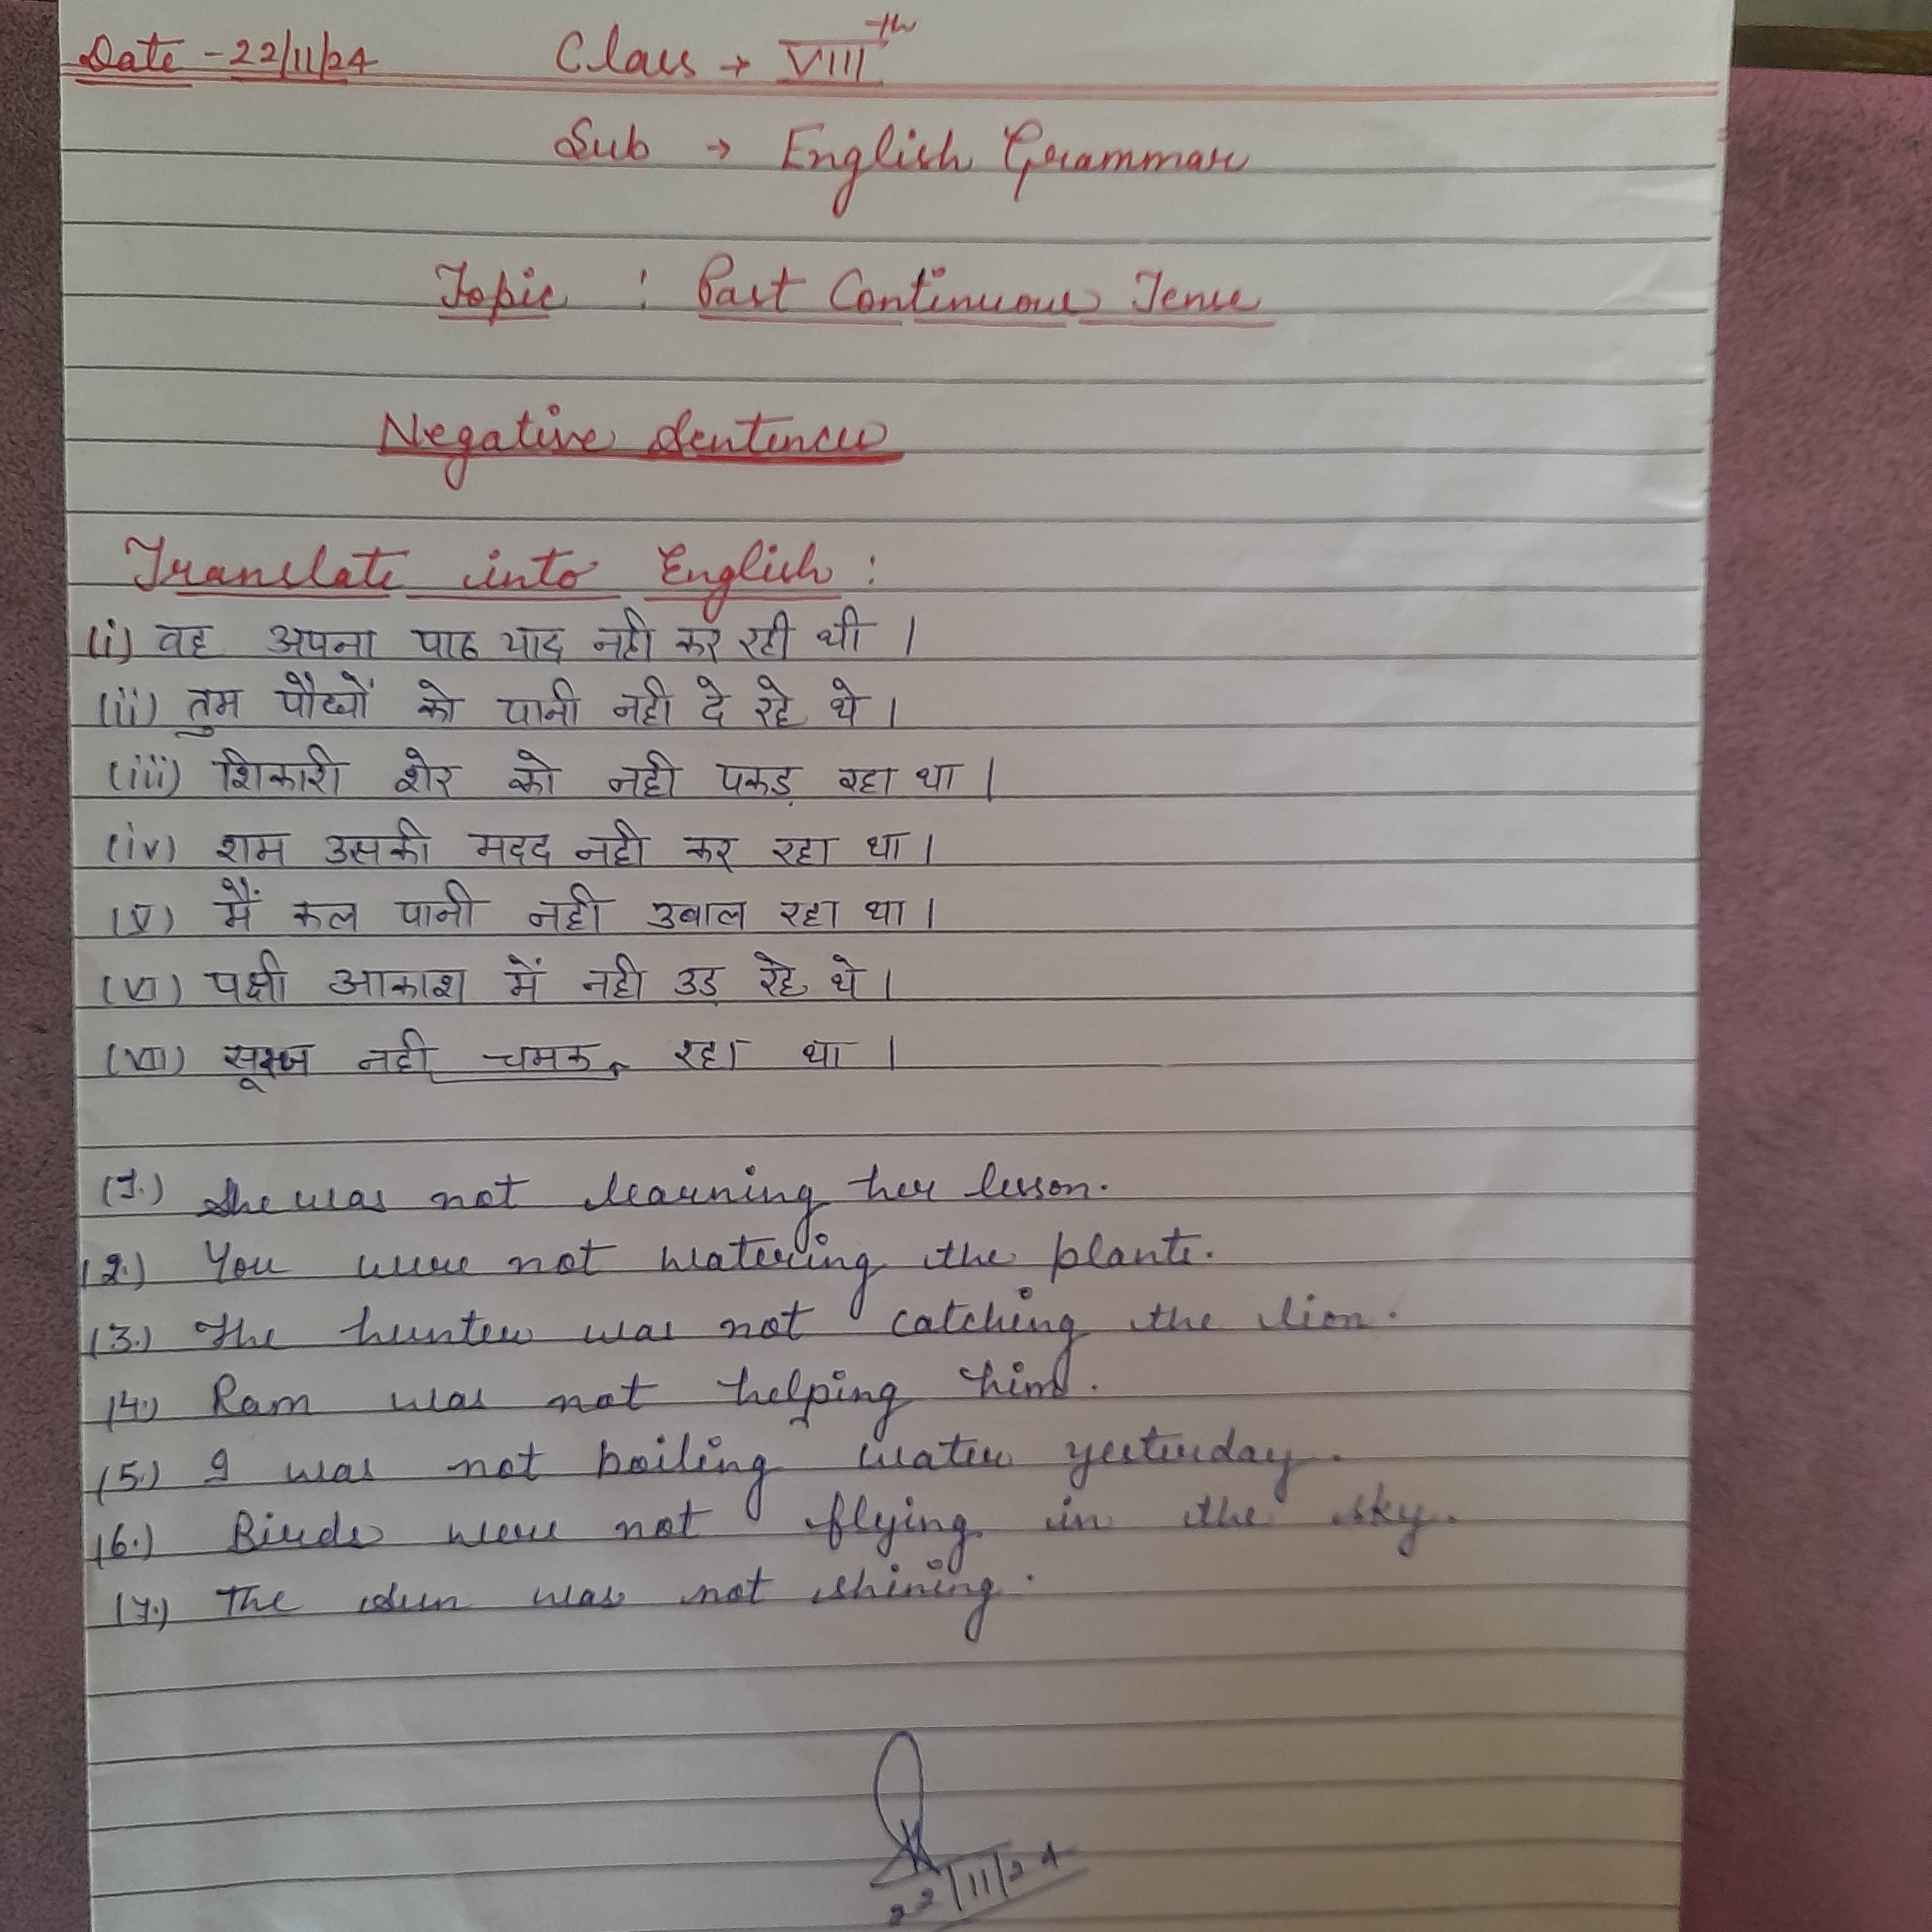 Date - 22/11/24 Class → VIIIth
Sub → English Grammar
Topic : Past Continuous Tense
Negative Sentences
Translate into English :
(i) वह अपना पाठ याद नही कर रही थी ।
(ii) तुम पौधों को पानी नही दे रहे थे ।
(iii) शिकारी शेर को नही पकड़ रहा था ।
(iv) राम उसकी मदद नही कर रहा था ।
(v) मैं कल पानी नही उबाल रहा था ।
(vi) पक्षी आकाश में नही उड़ रहे थे ।
(vii) सूरज नही चमक रहा था ।
(1.) She was not learning her lesson.
(2.) You were not watering the plants.
(3.) The hunter was not catching the lion.
(4.) Ram was not helping him.
(5.) I was not boiling water yesterday.
(6.) Birds were not flying in the sky.
(7.) The sun was not shining.
22/11/24